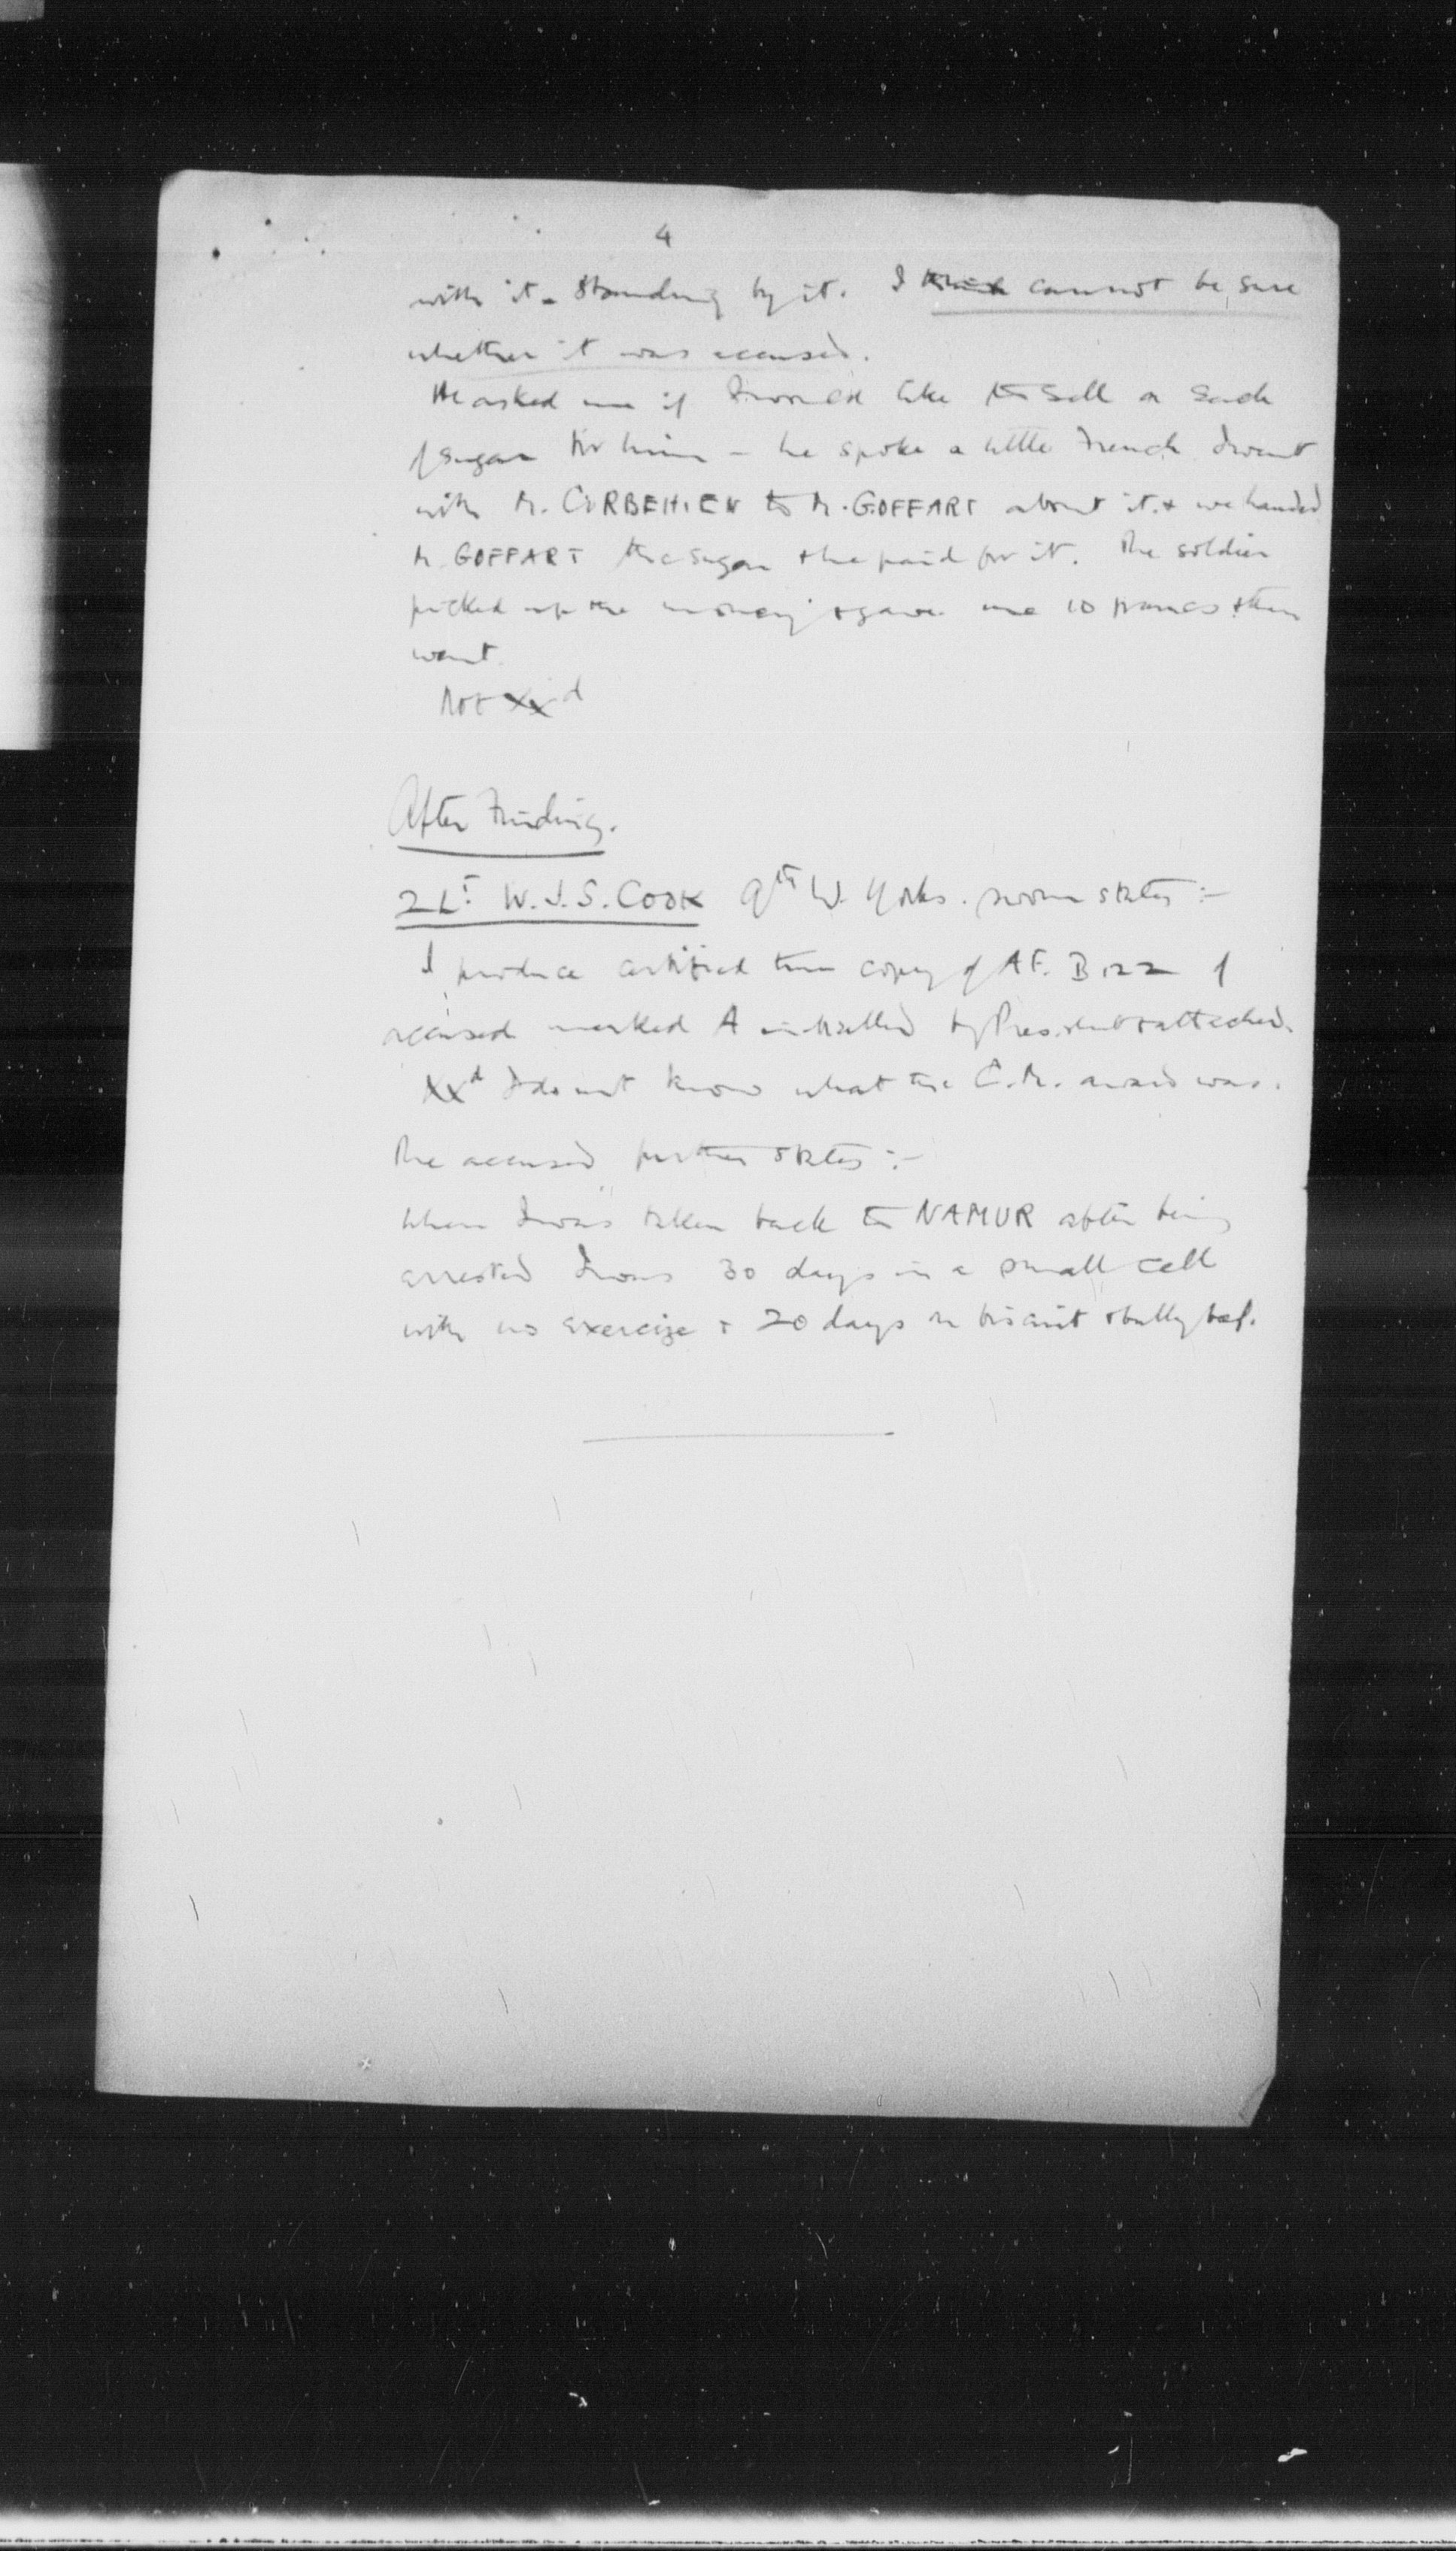 4
with it - standing by it. I think cannot be sure
whether it was accused.
He asked me if I would like to sell a sack
of sugar for him - he spoke a little French. I went
with M. CORBEHIEN to M. GOFFART about it & we handed
M. GOFFART the sugar & he paid for it. The soldier
picked up the money & gave me 10 francs & then
went.
Not XXd
After Finding.
2 Lt. W.J.S. COOK 9th W. Yorks. sworn states :-
I produce certified true copy of A.F. B 122 of
accused marked A initialled by President & attached.
XXd I do not know what the C.M. award was.
The accused further states :-
When I was taken back to NAMUR after being
arrested I was 30 days in a small cell
with no exercize & 20 days on biscuit & bully beef.